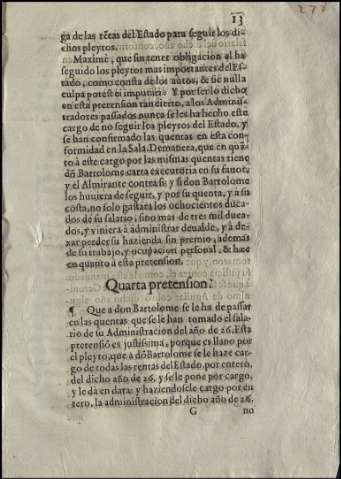 13
278
ga de las rẽtas del Estado para seguir los di-
chos pleytos.
Maximè, que sin tener obligaciõ el ha
seguido los pleytos mas importantes del Es-
tado, como consta de los autos, & sic nulla
culpa potest ei imputari. Y por ser lo dicho
en esta pretension tan cierto, a los Adminis-
tradores passados nunca se les ha hecho este
cargo de no seguir los pleytos del Estado, y
se han confirmado las quentas en esta con-
formidad en la Sala. Demanera, que en quã-
to à este cargo por las mismas quentas tiene
dõ Bartolome carta executoria en su fauor,
y el Almirante contra si: y si don Bartolome
los huuiera de seguir, y por su quenta, y a su
costa, no solo gastara los ochocientos duca-
dos de su salario, sino mas de tres mil duca-
dos, y viniera à administrar devalde, y à de-
xar perder su hazienda sin premio, ademas
de su trabajo, y ocupacion personal, & hæc
en quanto à esta pretension.
Quarta pretension.
¶ Que a don Bartolome se le ha de passar
en las quentas que se le han tomado el sala-
rio de su Administracion del año de 26. Esta
pretensiõ es justissima, porque es llano por
el pleyto, que à dõ Bartolome se le haze car-
go de todas las rentas del Estado, por entero,
del dicho año de 26. y se le pone por cargo,
y le da en data: y haziendosele cargo por en
tero, la administracion del dicho año de 26.
G no